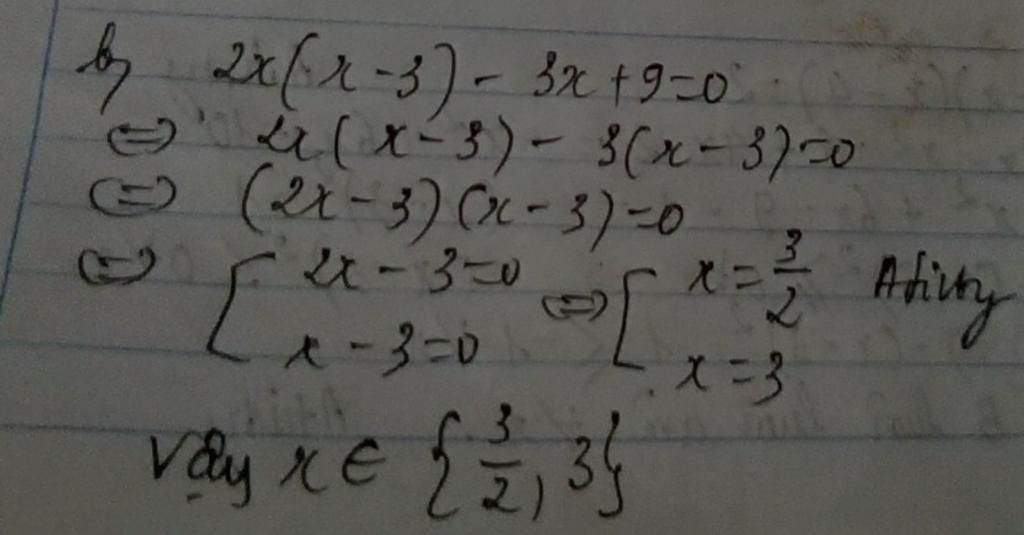 b, 2x(x-3) - 3x+9=0
⇔ 2x(x-3) - 3(x-3)=0
⇔ (2x-3)(x-3)=0
⇔ [ 2x-3=0 ⇔ [ x=3/2
x-3=0 x=3
Vậy x ∈ {3/2, 3}